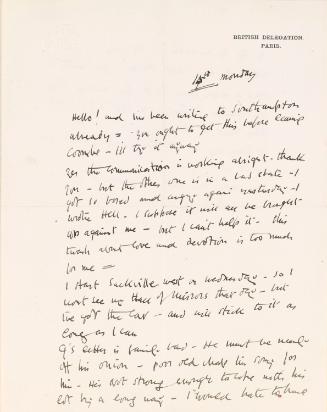 BRITISH DELEGATION,
PARIS.
Monday
Hello! and I've been writing to Southampton
already = you ought to get this before leaving
Coombe - I'll try it anyway
Yes the communication is working alright - thank
you - but the other one is in a bad state - I
got so bored and angry again yesterday - I
wrote Hell. I suppose it will all be brought
up against me - but I can't help it - this
trash about love and devotion is too much
for me =
I start Sackville West on Wednesday - so I
won't see my Hall of Mirrors that day - but
I've got the car - and will stick to it as
long as I can
G's letter is bad. He must be nearly
off his onion - poor old chap I'm sorry for
him - He's not strong enough to cope with his
lot by a long way - I would hate